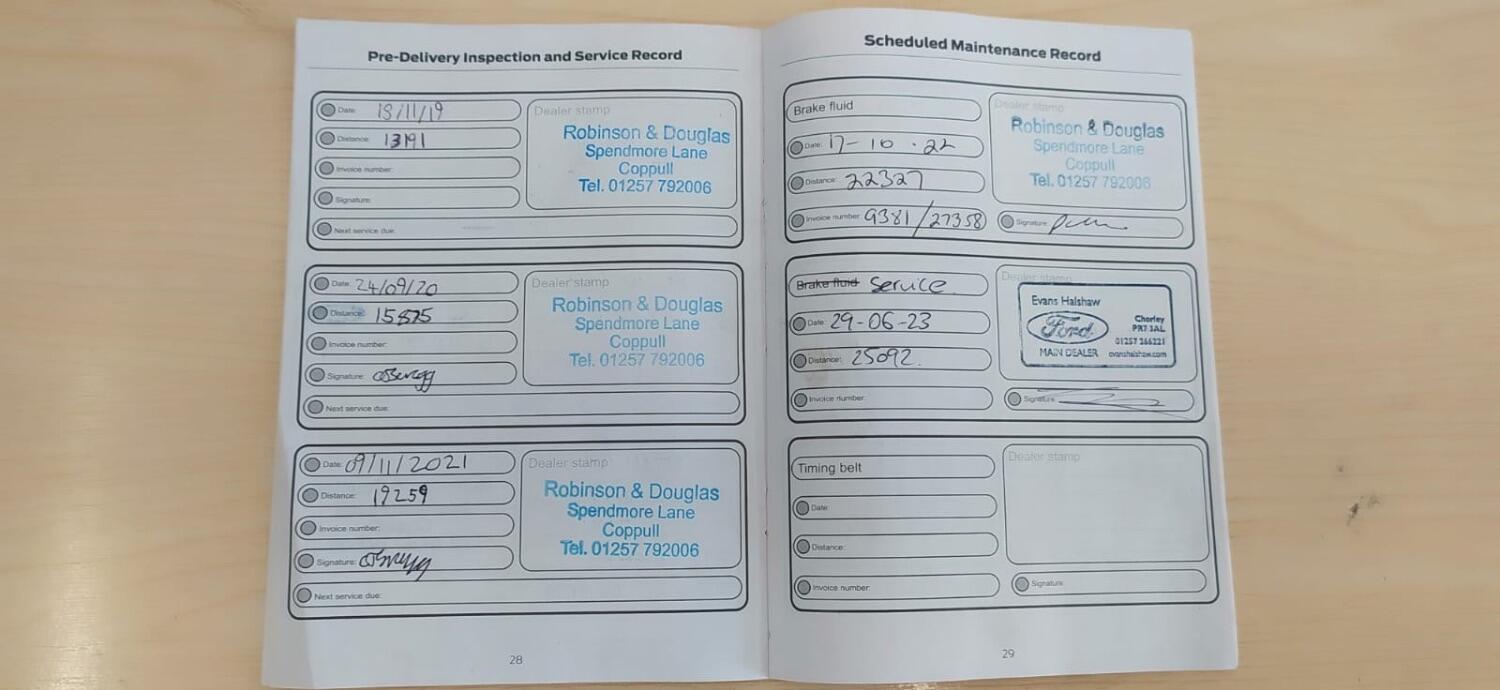 Pre-Delivery Inspection and Service Record
Date: 13/11/19
Distance: 13191
Invoice number:
Signature:
Next service due:
Dealer stamp
Robinson & Douglas
Spendmore Lane
Coppull
Tel. 01257 792006
Date: 24/09/20
Distance: 15875
Invoice number:
Signature:
Next service due:
Dealer stamp
Robinson & Douglas
Spendmore Lane
Coppull
Tel. 01257 792006
Date: 09/11/2021
Distance: 19259
Invoice number:
Signature:
Next service due:
Dealer stamp
Robinson & Douglas
Spendmore Lane
Coppull
Tel. 01257 792006
28
Scheduled Maintenance Record
Brake fluid
Date: 17-10.22
Distance: 22327
Invoice number: 9381/27358
Dealer stamp
Robinson & Douglas
Spendmore Lane
Coppull
Tel. 01257 792006
Signature:
Brake fluid Service
Date: 29-06-23
Distance: 25092.
Invoice number:
Dealer stamp
Evans Halshaw
Ford
MAIN DEALER
Chorley
PR7 3AL
01257 266221
evanshalshaw.com
Signature:
Timing belt
Date:
Distance:
Invoice number:
Dealer stamp
Signature:
29